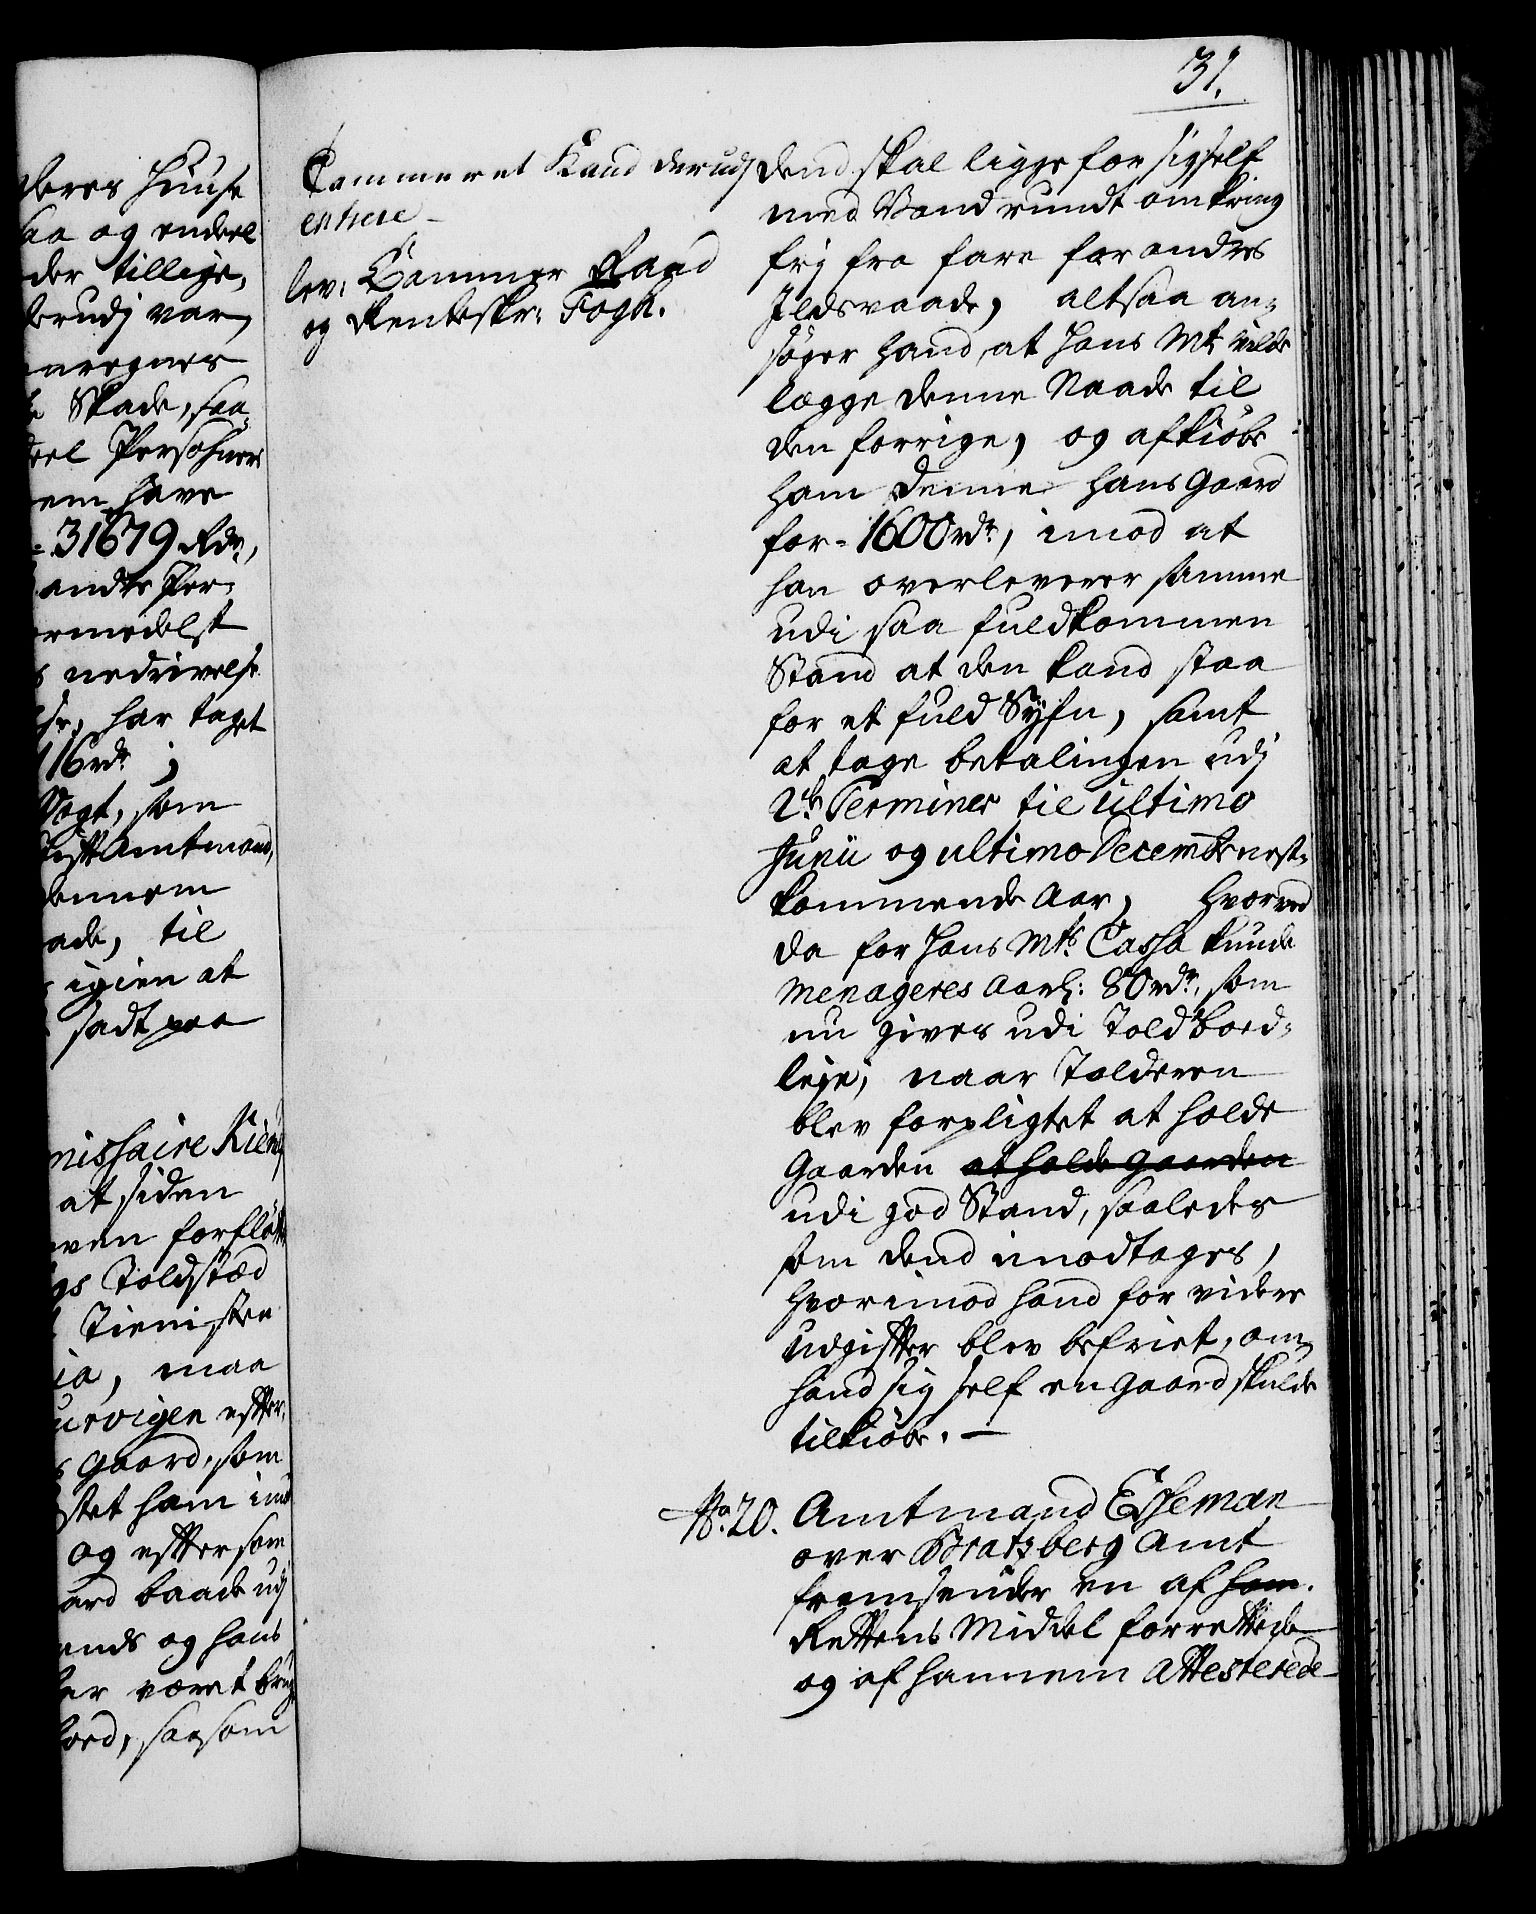 31.
deres Huuse
saa og endeel
der tillige,
derudj var,
Skade, saa
Persohner
have
31679 Rdr,
andre Per-
formedelst
nedrivelse
har taget
116 rdr;
Vogt, som
Stift Amtmand,
dennem
til
igien at
sadt paa
missaire
at siden
Toldstæd
Tienisten
maa
Laurvigen effter,
Gaard, som
ham
og effter som
baade udj
og hans
været
saasom
Cammeret Kand derudj
entrere
lev: Cammer Raad
og Renteskr: Fogh.
dend skal ligge for sig self
med Vand rundt omkring
frj fra fare for andres
Ildsvaade, altsaa an-
søger hand, at Hans Mt: vilde
lægge denne Naade til
den forrige, og afkiøbe
ham denne hans Gaard
for 1600 rdr, imod at
han overleverer samme
udi saa fuldkommen
Stand at den kand staa
for et fuld Syfn, samt
at tage betalingen udj
2de Terminer til ultimo
Junii og ultimo Decembr nest-
kommende Aar, hvorved
da for Hans Mts Cassa kunde
menageres Aarl: 80 rdr, som
nu gives udi Toldboed-
leje, naar Tolderen
blev forpligtet at holde
Gaarden at holde Gaarden
udi god Stand, saaledes
som dend imodtages,
hvorimod hand for videre
Udgiffter blev befriet, om
hand sig self en Gaard skulde
tilkiøbe. —
No: 20. Amtmand Esseman
over Bratzberg Amt
fremsender en af ham.
Rettens Middel forrettede
og af hannem Attesterede